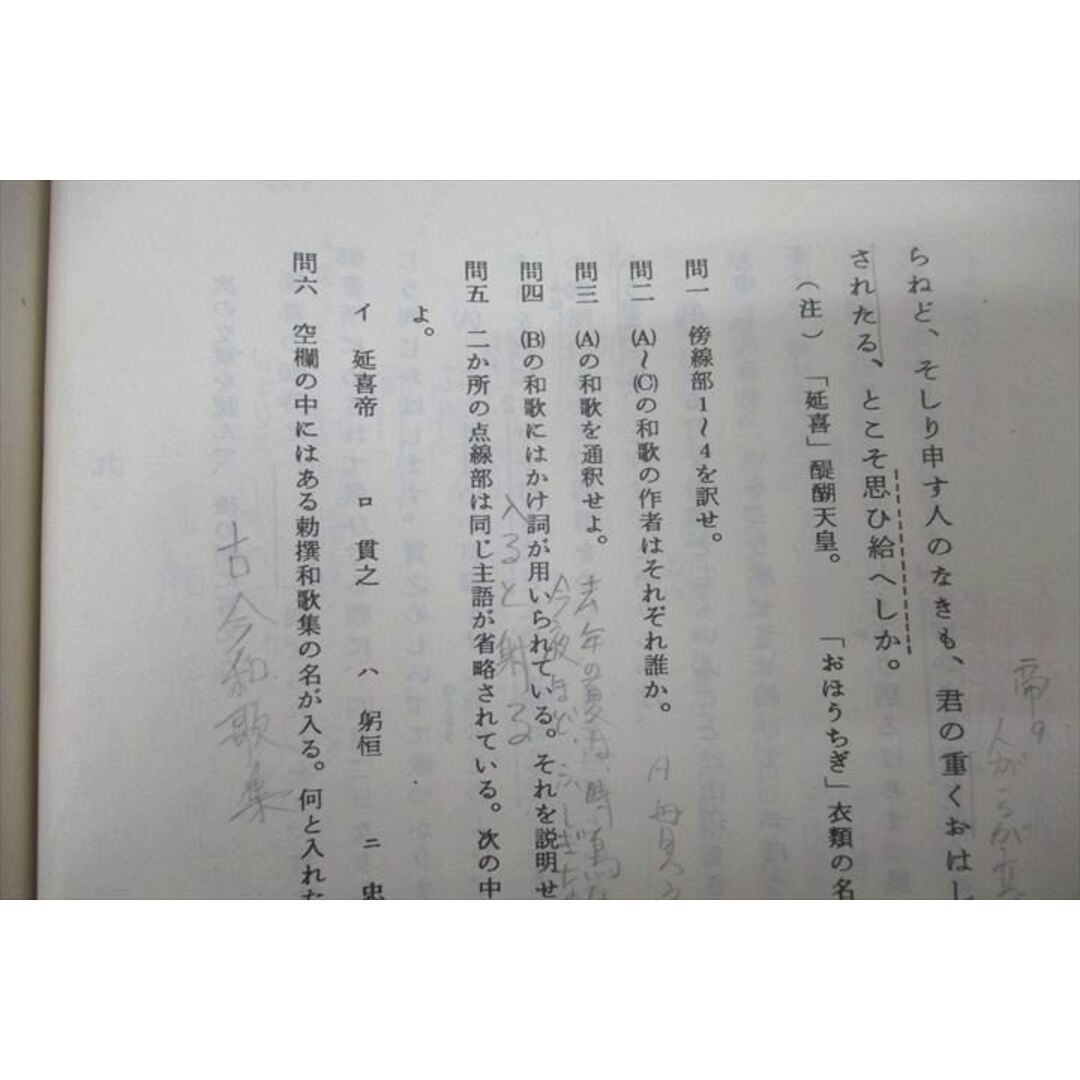 らねど、そしり申す人のなきも、君の重くおはし
されたる、とこそ思ひ給へしか。
(注) 「延喜」醍醐天皇。 「おほうちぎ」衣類の名
問一 傍線部1〜4を訳せ。
問二 (A)〜(C)の和歌の作者はそれぞれ誰か。
問三 (A)の和歌を通釈せよ。
去年の夏
問四 (B)の和歌にはかけ詞が用いられている。それを説明せ
入ると射る
問五 二か所の点線部は同じ主語が省略されている。次の中
よ。
イ 延喜帝 ロ 貫之 ハ 躬恒 ニ 忠
問六 空欄の中にはある勅撰和歌集の名が入る。何と入れた
古今和歌集